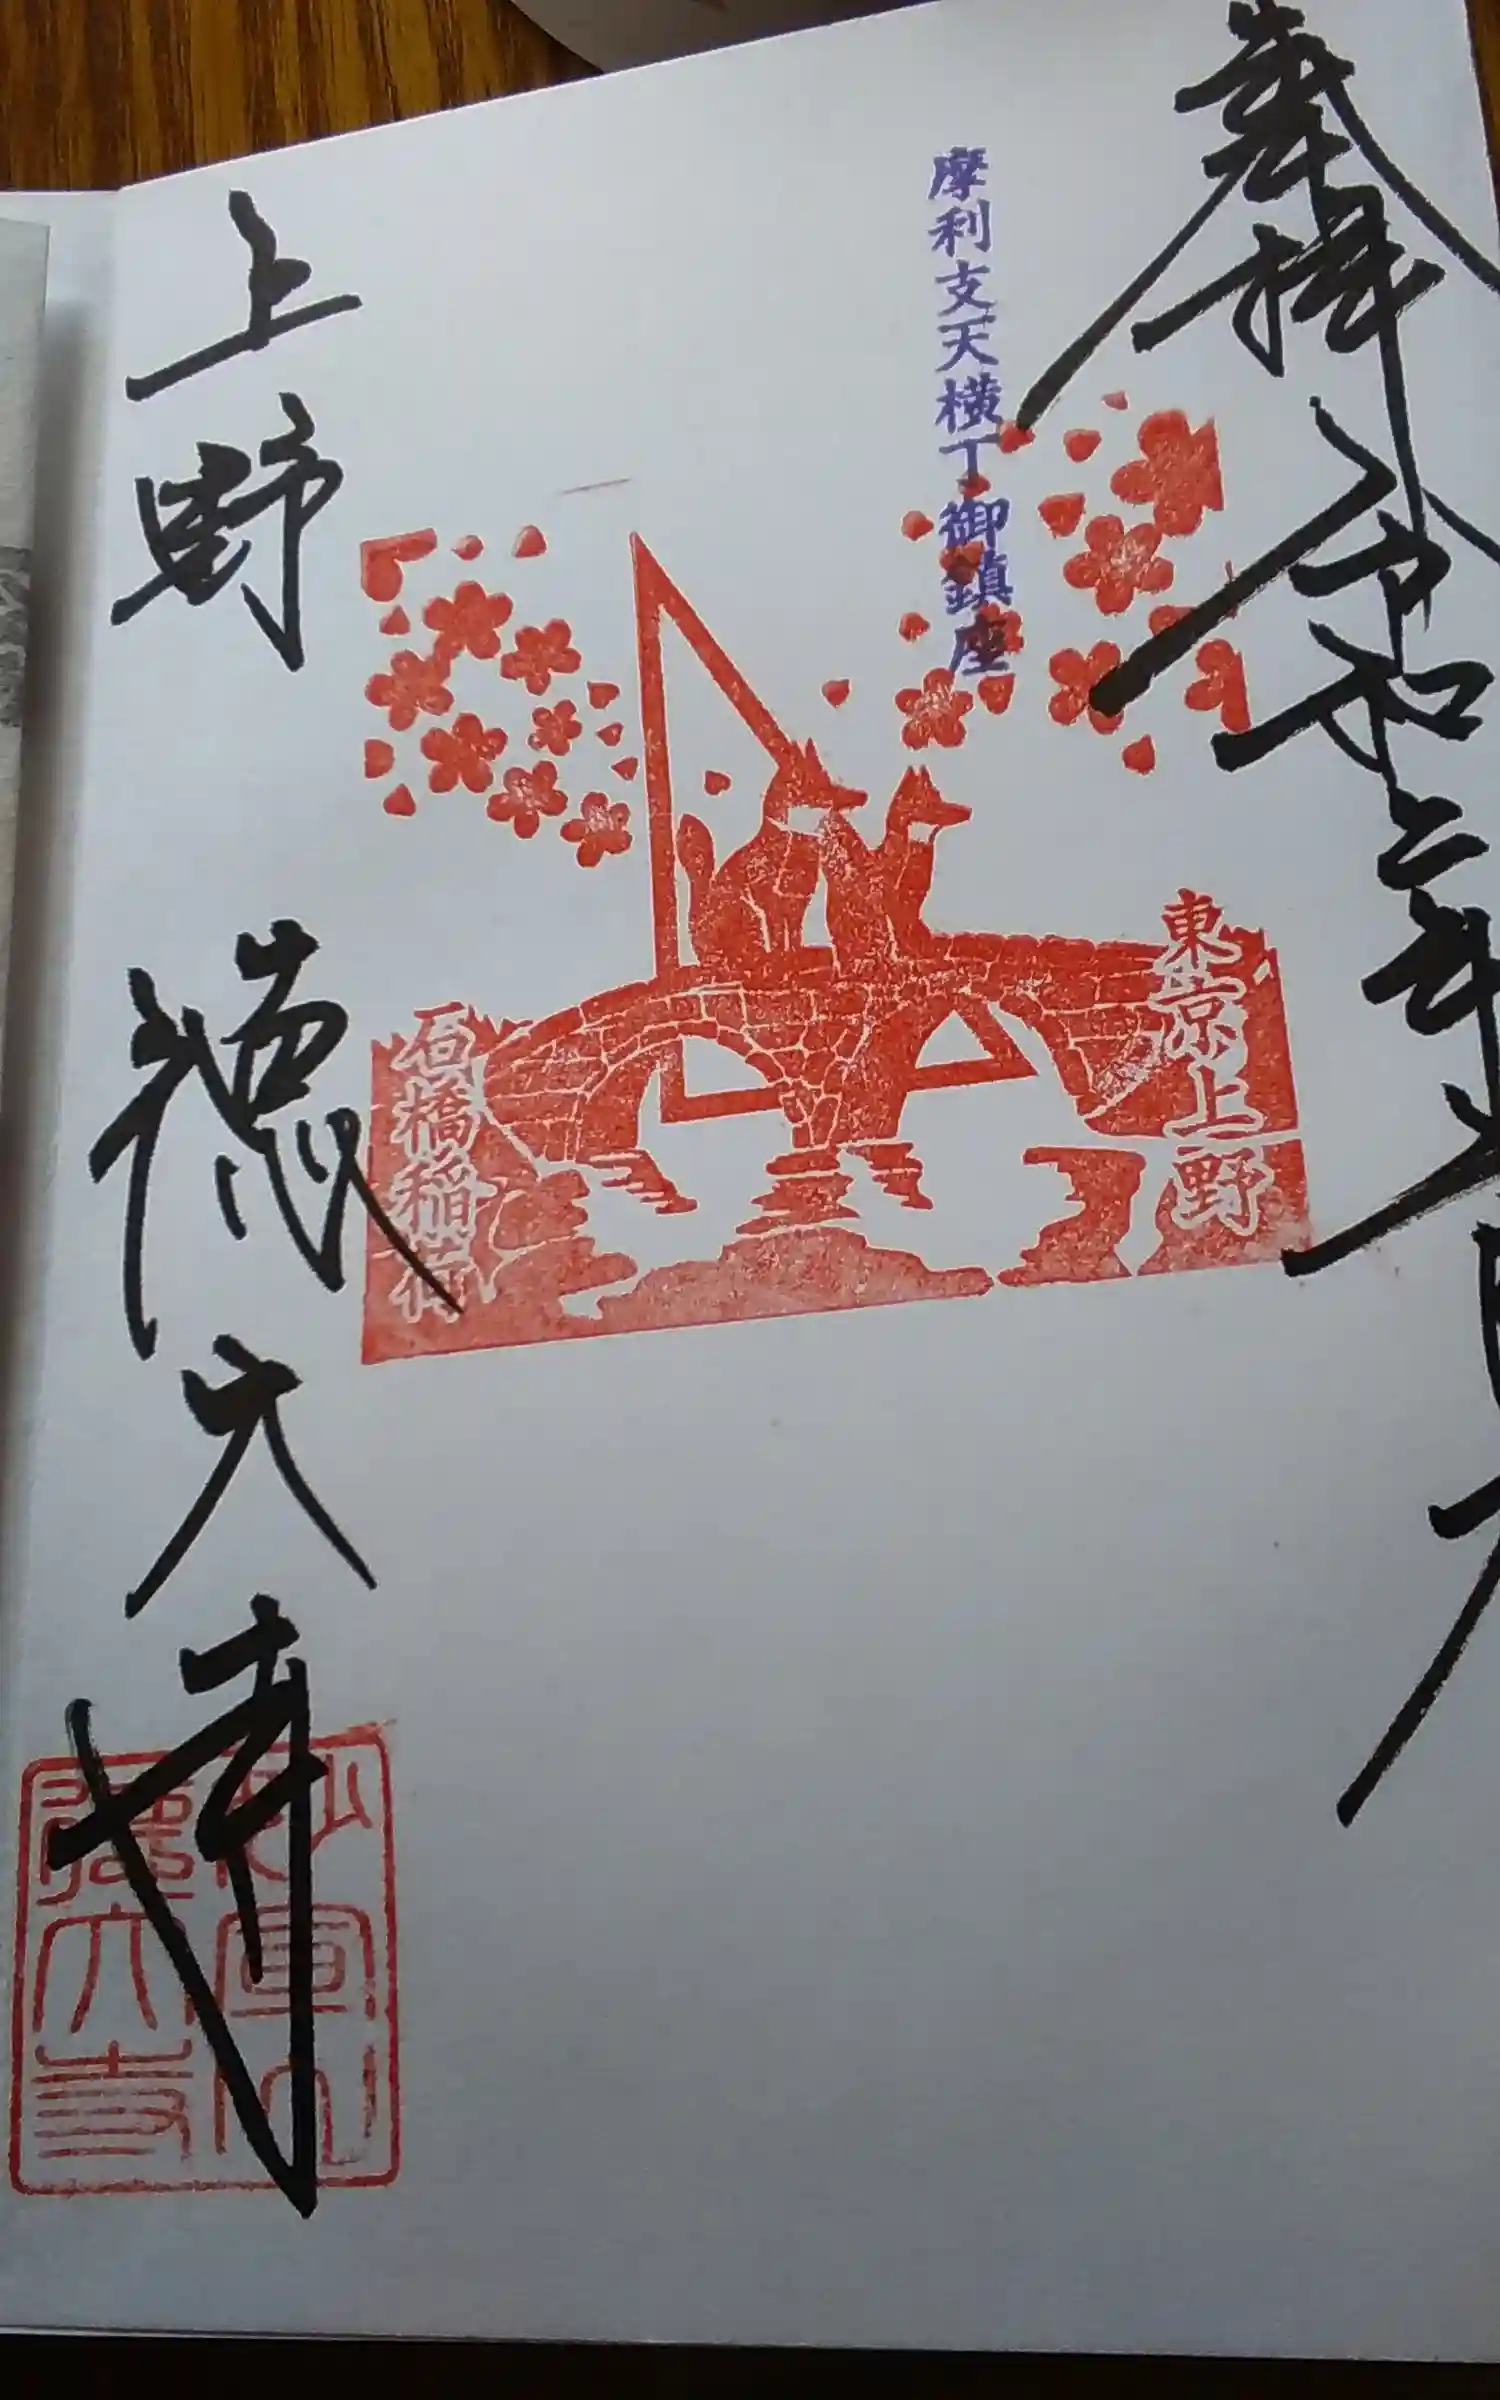 奉拝 令和二年 月
摩利支天横丁御鎮座
東京上野
石橋稲荷
上野 徳大寺
妙宣山
徳大寺